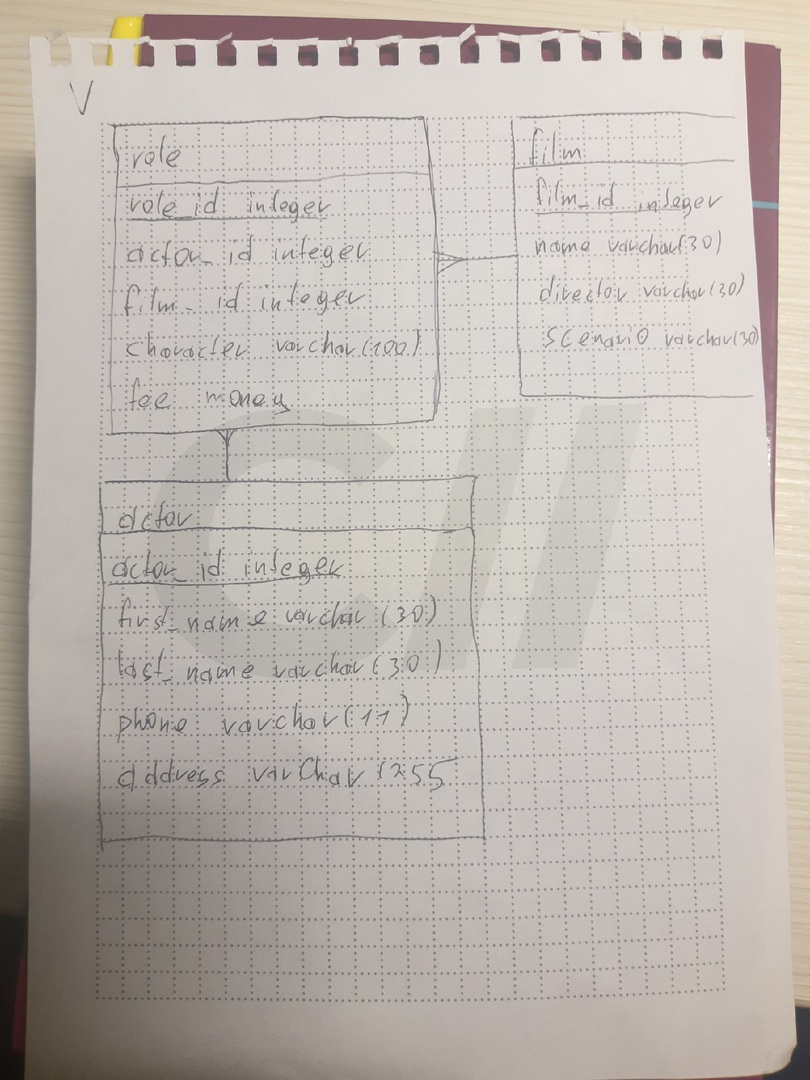 V
role
role_id integer
actor_id integer
film_id integer
character varchar(100)
fee money
film
film_id integer
name varchar(30)
director varchar(30)
scenario varchar(30)
actor
actor_id integer
first_name varchar(30)
last_name varchar(30)
phone varchar(11)
address varchar(255